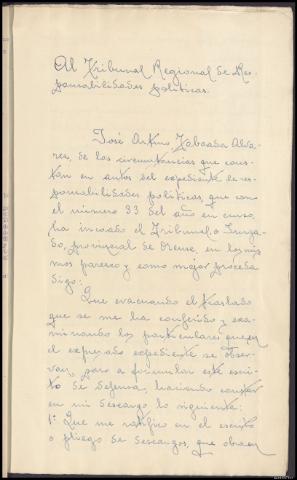 Al Tribunal Regional de Res-
ponsabilidades políticas.
José Arturo Taboada Alva-
rez, de las circunstancias que cons-
tan en autos del expediente de res-
ponsabilidades políticas, que con
el número 33 del año en curso,
ha incoado el Tribunal, o Juzga-
do, provincial de Orense, en los mis-
mos parezco y como mejor proceda
digo:
Que evacuando el traslado
que se me ha conferido y exa-
minando los particulares que en
el expresado expediente se obser-
van, paso a formular este escri-
to de defensa, haciendo constar
en mi descargo lo siguiente:
1º Que me ratifico en el escrito
o pliego de descargos, que obra en